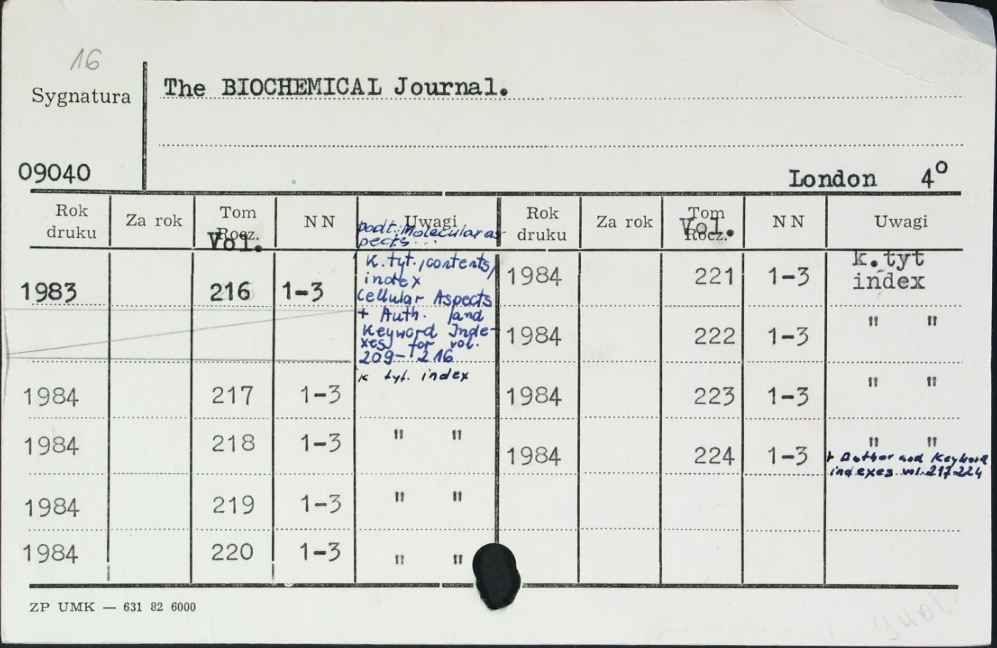 16
Sygnatura
The BIOCHEMICAL Journal.
09040
London 4°
Rok druku
Za rok
Tom Rocz.
Vol.
N N
Uwagi
podt. Molecular as
pects...
1983 216 1-3
K. tyt., contents,
index
Cellular Aspects
+ Auth. and
Keyword Inde-
xes for vol.
209-216
1984 217 1-3 k tyt. index
1984 218 1-3 " "
1984 219 1-3 " "
1984 220 1-3 " "
Rok druku
Za rok
Tom Rocz.
Vol.
N N
Uwagi
1984 221 1-3 k. tyt
index
1984 222 1-3 " "
1984 223 1-3 " "
1984 224 1-3 " "
+ Author and Keyword
indexes vol. 217-224
ZP UMK — 631 82 6000